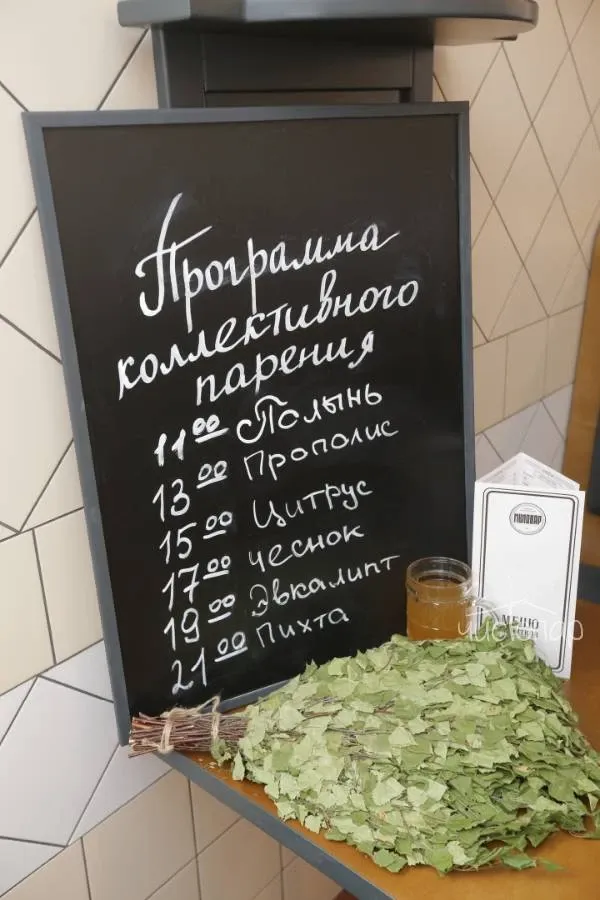 Программа
коллективного
парения
11⁰⁰ Полынь
13⁰⁰ Прополис
15⁰⁰ Цитрус
17⁰⁰ чеснок
19⁰⁰ Эвкалипт
21⁰⁰ Пихта
МЫЛОВАР
МЕНЮ
чистопар